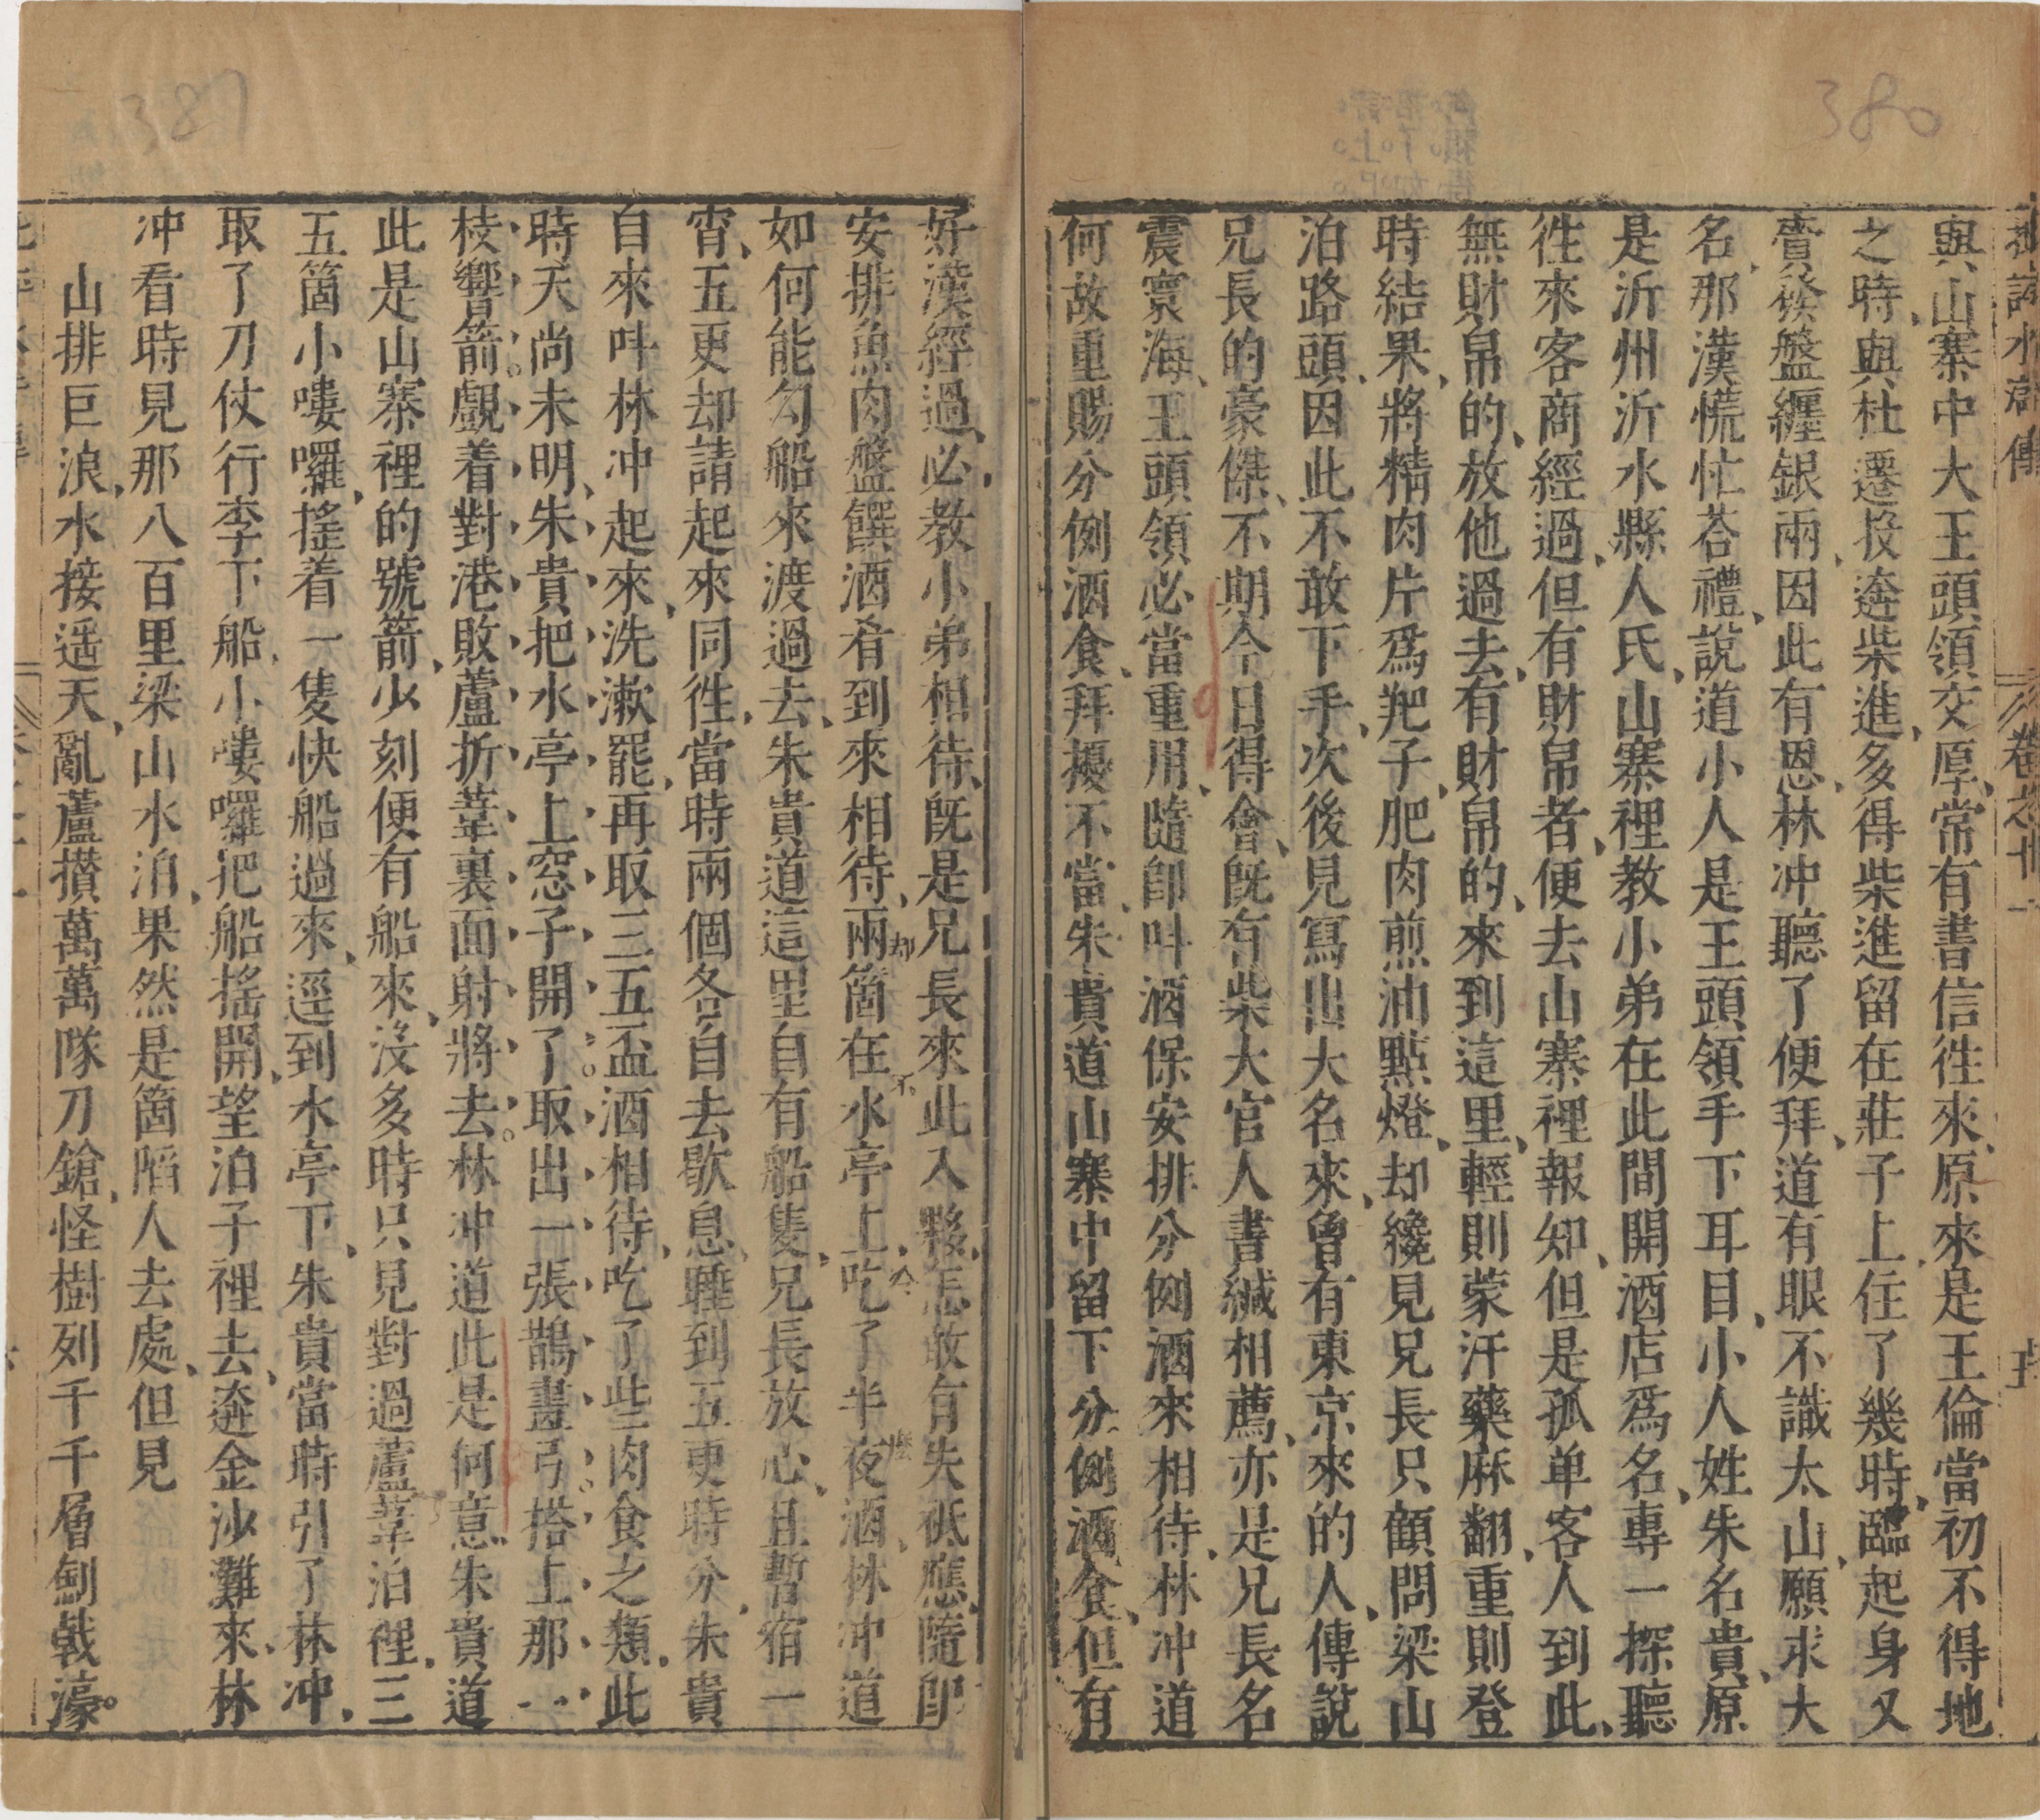 380
與山寨中大王頭領交厚、常有書信徃來、原來是王倫當初不得地
之時、與杜遷投逩柴進、多得柴進留在莊子上、住了幾時、臨起身又
賫發盤纏銀兩、因此有恩、林冲聽了便拜、道有眼不識太山、願求大
名、那漢慌忙荅禮、說道小人是王頭領手下耳目、小人姓朱名貴、原
是沂州沂水縣人氏、山寨裡教小弟在此間開酒店爲名、專一探聽
徃來客商經過、但有財帛者、便去山寨裡報知、但是孤单客人到此、
無財帛的、放他過去、有財帛的、來到這里、輕則蒙汗藥麻翻、重則登
時結果、將精肉片爲羓子、肥肉煎油點燈、却纔見兄長只顧問梁山
泊路頭、因此不敢下手、次後見寫出大名來、曾有東京來的人、傳說
兄長的豪傑、不期今日得會、旣有柴大官人書緘相薦、亦是兄長名
震寰海、王頭領必當重用、隨即呌酒保安排分例酒來相待、林冲道
何故重賜分例酒食、拜擾不當、朱貴道山寨中留下分例酒食、但有
387
好漢經過、必教小弟相待、旣是兄長來此入夥、怎敢有失祗應、隨即
安排魚肉盤饌酒肴到來相待、兩箇在水亭上、吃了半夜酒、林冲道
如何能勾船來渡過去、朱貴道這里自有船隻、兄長放心、且暫宿一
宵、五更却請起來同徃、當時兩個各自去歇息、睡到五更時分、朱貴
自來呌林冲起來、洗漱罷、再取三五盃酒相待、吃了些肉食之類、此
時天尚未明、朱貴把水亭上窓子開了、取出一張鵲畫弓、搭上那一
枝響箭。覷着對港敗蘆折葦裏面射將去。林冲道此是何意、朱貴道
此是山寨裡的號箭、少刻便有船來、沒多時只見對過蘆葦泊裡、三
五箇小嘍囉、搖着一隻快船過來、逕到水亭下、朱貴當時引了林冲、
取了刀仗行李下船、小嘍囉把船搖開、望泊子裡去、逩金沙灘來、林
冲看時見那八百里梁山水泊、果然是箇䧟人去處、但見
山排巨浪、水接遥天、亂蘆攢萬萬隊刀鎗、怪樹列千千層劍戟濠。